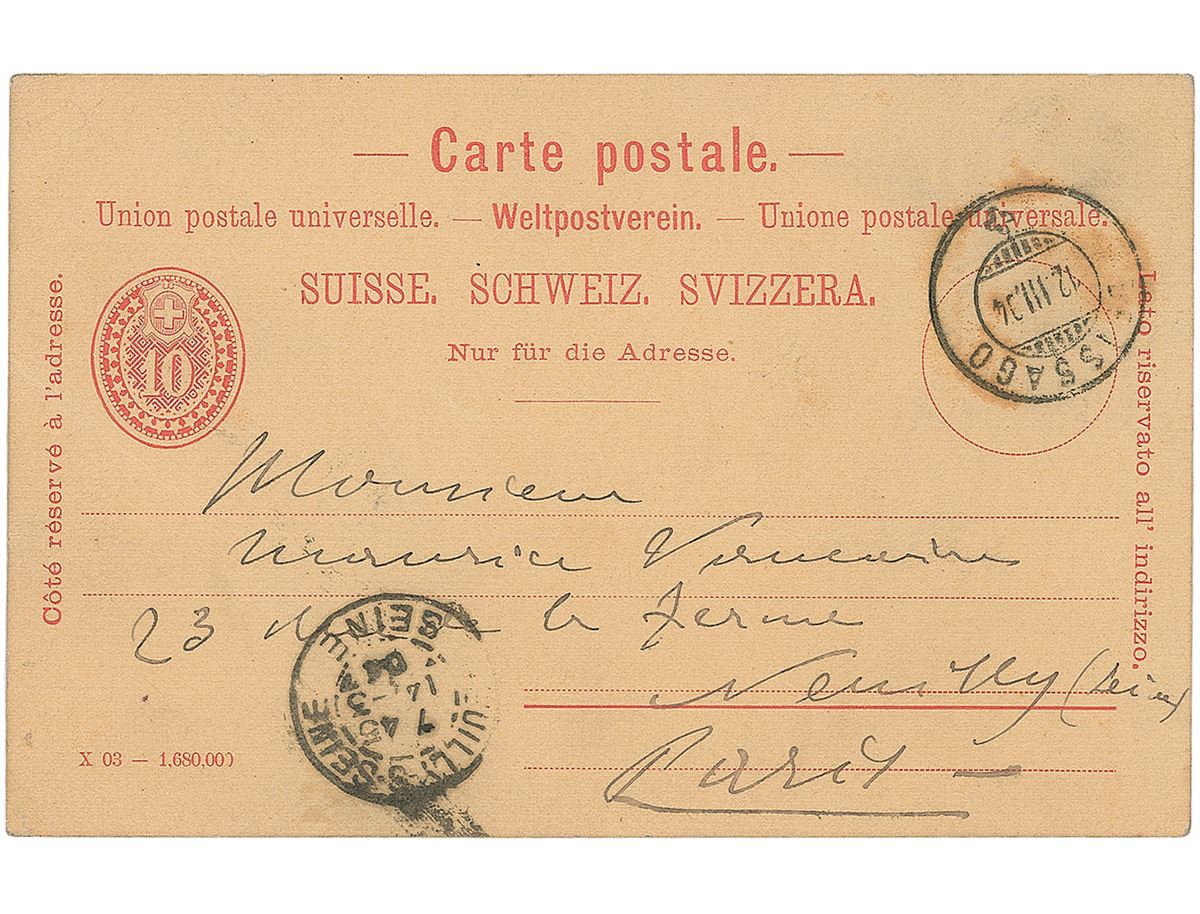 — Carte postale. —
Union postale universelle. — Weltpostverein. — Unione postale universale.
SUISSE. SCHWEIZ. SVIZZERA.
Nur für die Adresse.
Côté réservé à l'adresse.
Lato riservato all' indirizzo.
10
SSAGO
Monsieur
Maurice
23 de la Ferme
Neuilly (Seine)
Paris —
SEINE
SEINE
X 03 — 1,680,000